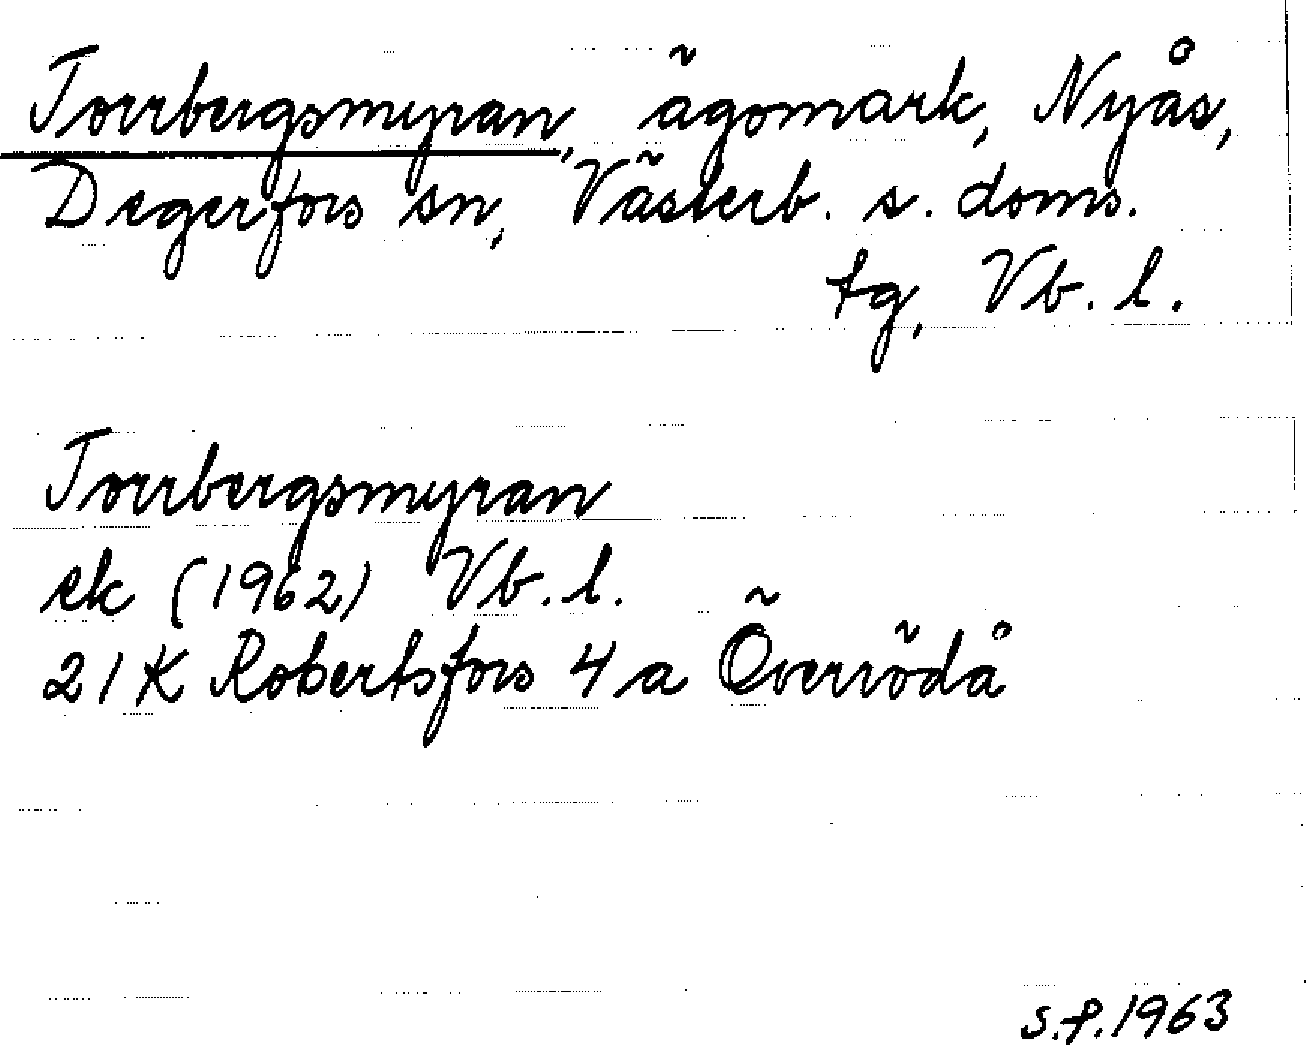 Torrbergsmyran, ägomark, Nyås,
Degerfors sn, Västerb. s. doms.
tg, Vb. l.
Torrbergsmyran
ek (1962) Vb. l.
21 K Robertsfors 4 a Överrödå
S.f. 1963